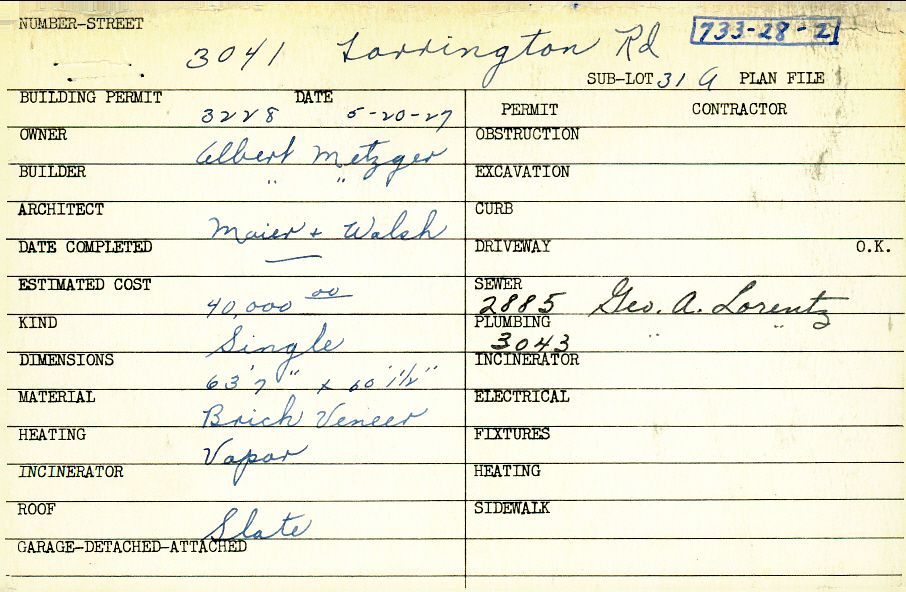 NUMBER-STREET
3041 Torrington Rd 733-28-2
SUB-LOT 31 A PLAN FILE
BUILDING PERMIT DATE
3228 5-20-27
PERMIT CONTRACTOR
OWNER
Albert Metzger
OBSTRUCTION
BUILDER
" "
EXCAVATION
ARCHITECT
Maier + Walsh
CURB
DATE COMPLETED
—
DRIVEWAY O.K.
ESTIMATED COST
40,000 00
SEWER
2885 Geo. A. Lorentz
KIND
Single
PLUMBING
3043 " "
DIMENSIONS
63'7" x 60'1½"
INCINERATOR
MATERIAL
Brick Veneer
ELECTRICAL
HEATING
Vapor
FIXTURES
INCINERATOR
HEATING
ROOF
Slate
SIDEWALK
GARAGE-DETACHED-ATTACHED